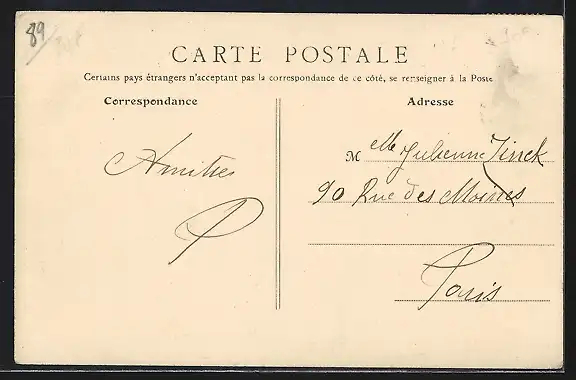 89
CARTE POSTALE
Certains pays étrangers n'acceptent pas la correspondance de ce côté, se renseigner à la Poste
Correspondance
Adresse
Amitiés
P
Melle Julienne Zinck
90 Rue des Moines
Paris